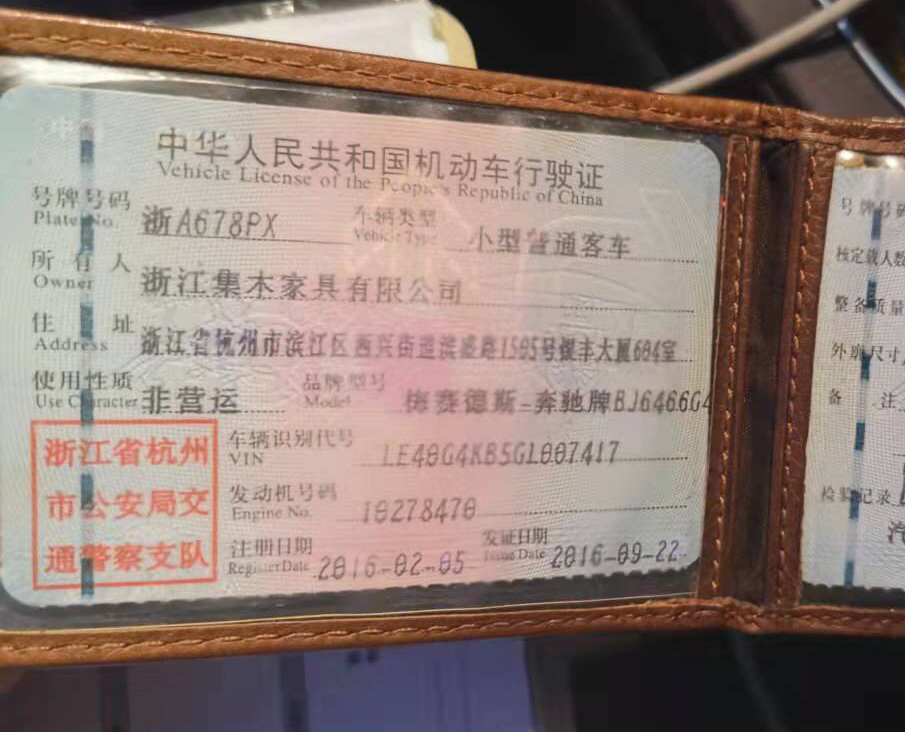 中华人民共和国机动车行驶证
Vehicle License of the People's Republic of China
号牌号码 浙A678PX 车辆类型 小型普通客车
Plate No. Vehicle Type
所有人 浙江集木家具有限公司
Owner
住址 浙江省杭州市滨江区西兴街道滨盛路1505号银丰大厦604室
Address
使用性质 非营运 品牌型号 梅赛德斯-奔驰牌BJ6466G4
Use Character Model
浙江省杭州
市公安局交
通警察支队
车辆识别代号 LE40G4KB5GL007417
VIN
发动机号码 10278470
Engine No.
注册日期 2016-02-05 发证日期 2016-09-22
Register Date Issue Date
号牌号码
核定载人数
整备质量
外廓尺寸
备 注
检验记录